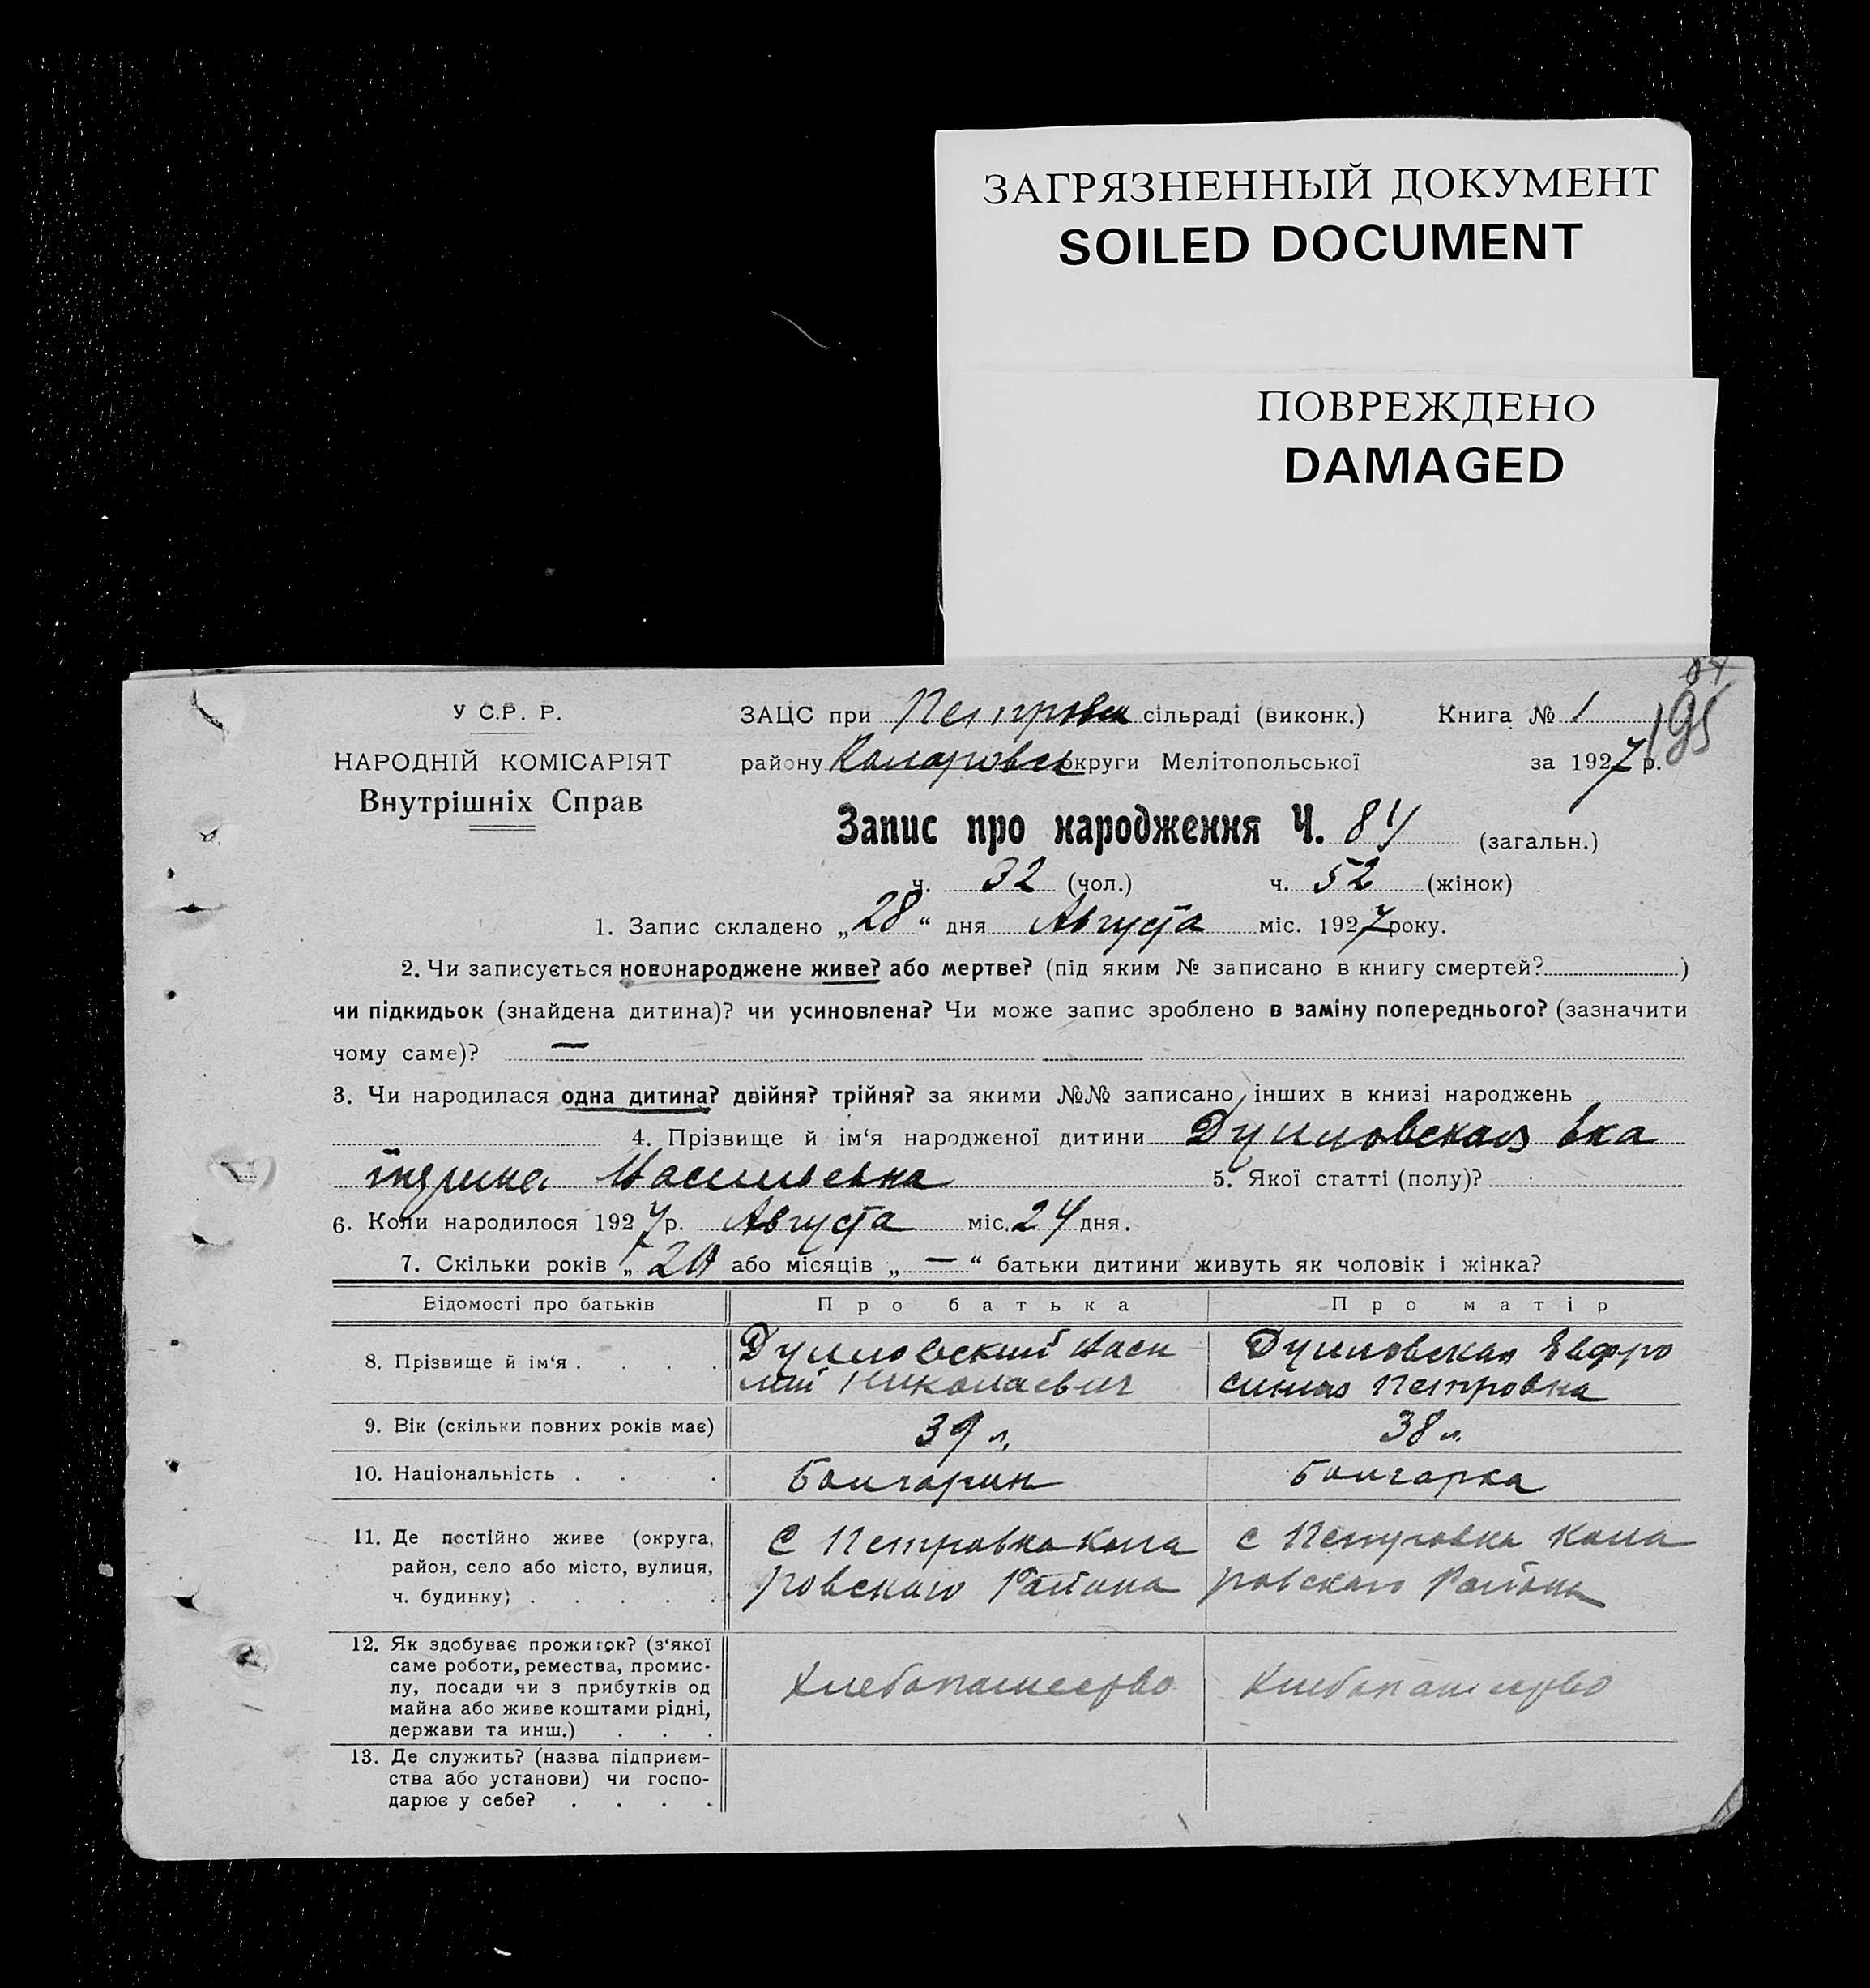 ЗАГРЯЗНЕННЫЙ ДОКУМЕНТ
SOILED DOCUMENT
ПОВРЕЖДЕНО
DAMAGED
У С.Р. Р.
НАРОДНІЙ КОМІСАРІЯТ
Внутрішніх Справ
ЗАЦС при Петровск сільраді (виконк.) Книга № 1
195
району Коларовск округи Мелітопольської за 1927 р.
Запис про народження Ч. 84 (загальн.)
ч. 32 (чол.) ч. 52 (жінок)
1. Запис складено „28“ дня Августа міс. 1927 року.
2. Чи записується новонароджене живе? або мертве? (під яким № записано в книгу смертей? )
чи підкидьок (знайдена дитина)? чи усиновлена? Чи може запис зроблено в заміну попереднього? (зазначити
чому саме)? —
3. Чи народилася одна дитина? двійня? трійня? за якими №№ записано інших в книзі народжень
4. Прізвище й ім‘я народженої дитини Ека
терина Васильевна 5. Якої статті (полу)?
6. Коли народилося 1927 р. Августа міс. 24 дня.
7. Скільки років „20 або місяців „—“ батьки дитини живуть як чоловік і жінка?
Відомості про батьків Про батька Про матір
8. Прізвище й ім‘я . . . .
Васи
лий Николаевич
Евфро
синия Петровна
9. Вік (скільки повних років має) 39 л. 38 л.
10. Національність . . . . Болгарин Болгарка
11. Де постійно живе (округа,
район, село або місто, вулиця,
ч. будинку) . . . . .
С Петровка Кола
ровского Района
с Петровка Кола
ровского Района
12. Як здобуває прожиток? (з‘якої
саме роботи, ремества, промис-
лу, посади чи з прибутків од
майна або живе коштами рідні,
держави та инш.) . . .
Хлебопашество Хлебопашество
13. Де служить? (назва підприєм-
ства або установи) чи госпо-
дарює у себе? . . . .